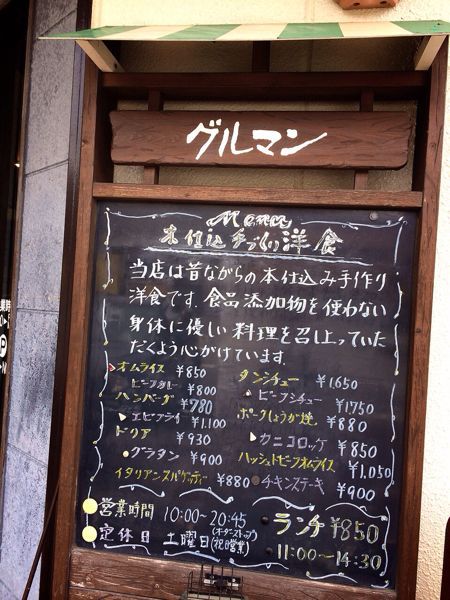 グルマン
Menu
本仕込手づくり洋食
当店は昔ながらの本仕込み手作り
洋食です。食品添加物を使わない
身体に優しい料理を召し上っていた
だくよう心がけています。
オムライス ¥850
ビーフカレー ¥800
ハンバーグ ¥780
エビフライ ¥1.100
ドリア ¥930
グラタン ¥900
イタリアンスパゲッティ ¥880
タンシチュー ¥1.650
ビーフシチュー ¥1750
ポークしょうが焼 ¥880
カニコロッケ ¥850
ハッシュドビーフオムライス ¥1,050
チキンステーキ ¥900
営業時間 10:00~20:45
(オーダーストップ)
定休日 土曜日(祝日営業)
ランチ ¥850
11:00~14:30